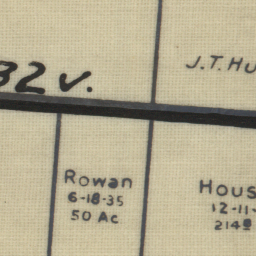 32 v.
J.T. Hu
Rowan
6-18-35
50 Ac
Hous
12-11-
214⁸